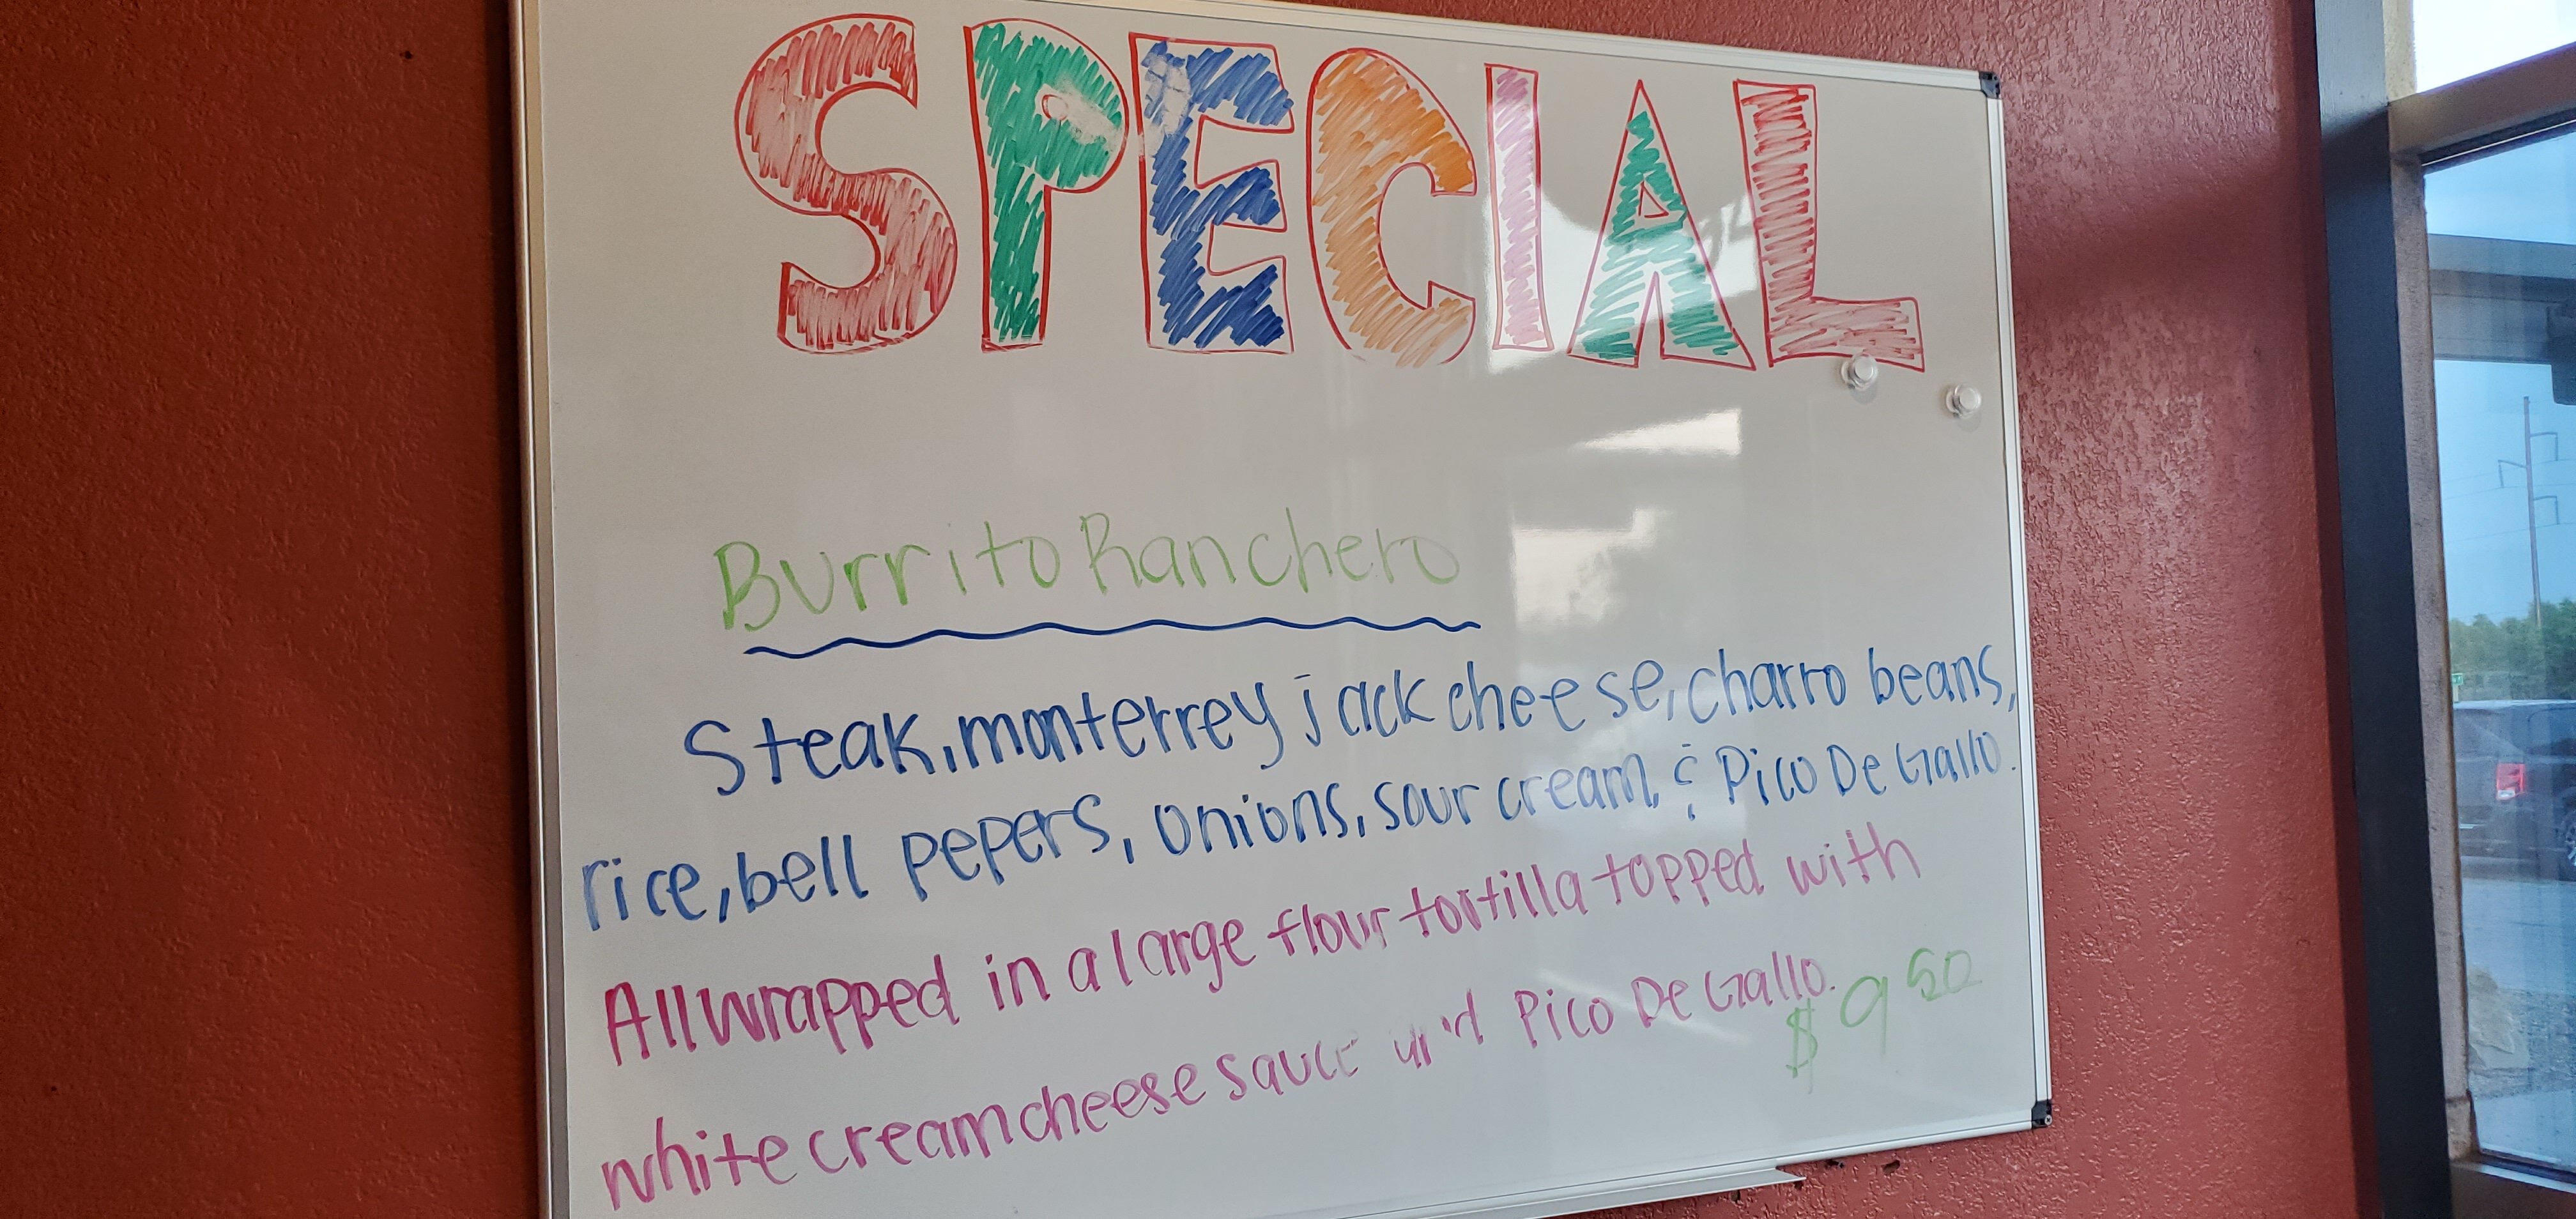 SPECIAL
Burrito Ranchero
Steak, monterrey jack cheese, charro beans,
rice, bell pepers, onions, sour cream, & Pico De Gallo.
All wrapped in a large flour tortilla topped with
white cream cheese sauce and Pico De Gallo.
$9.50